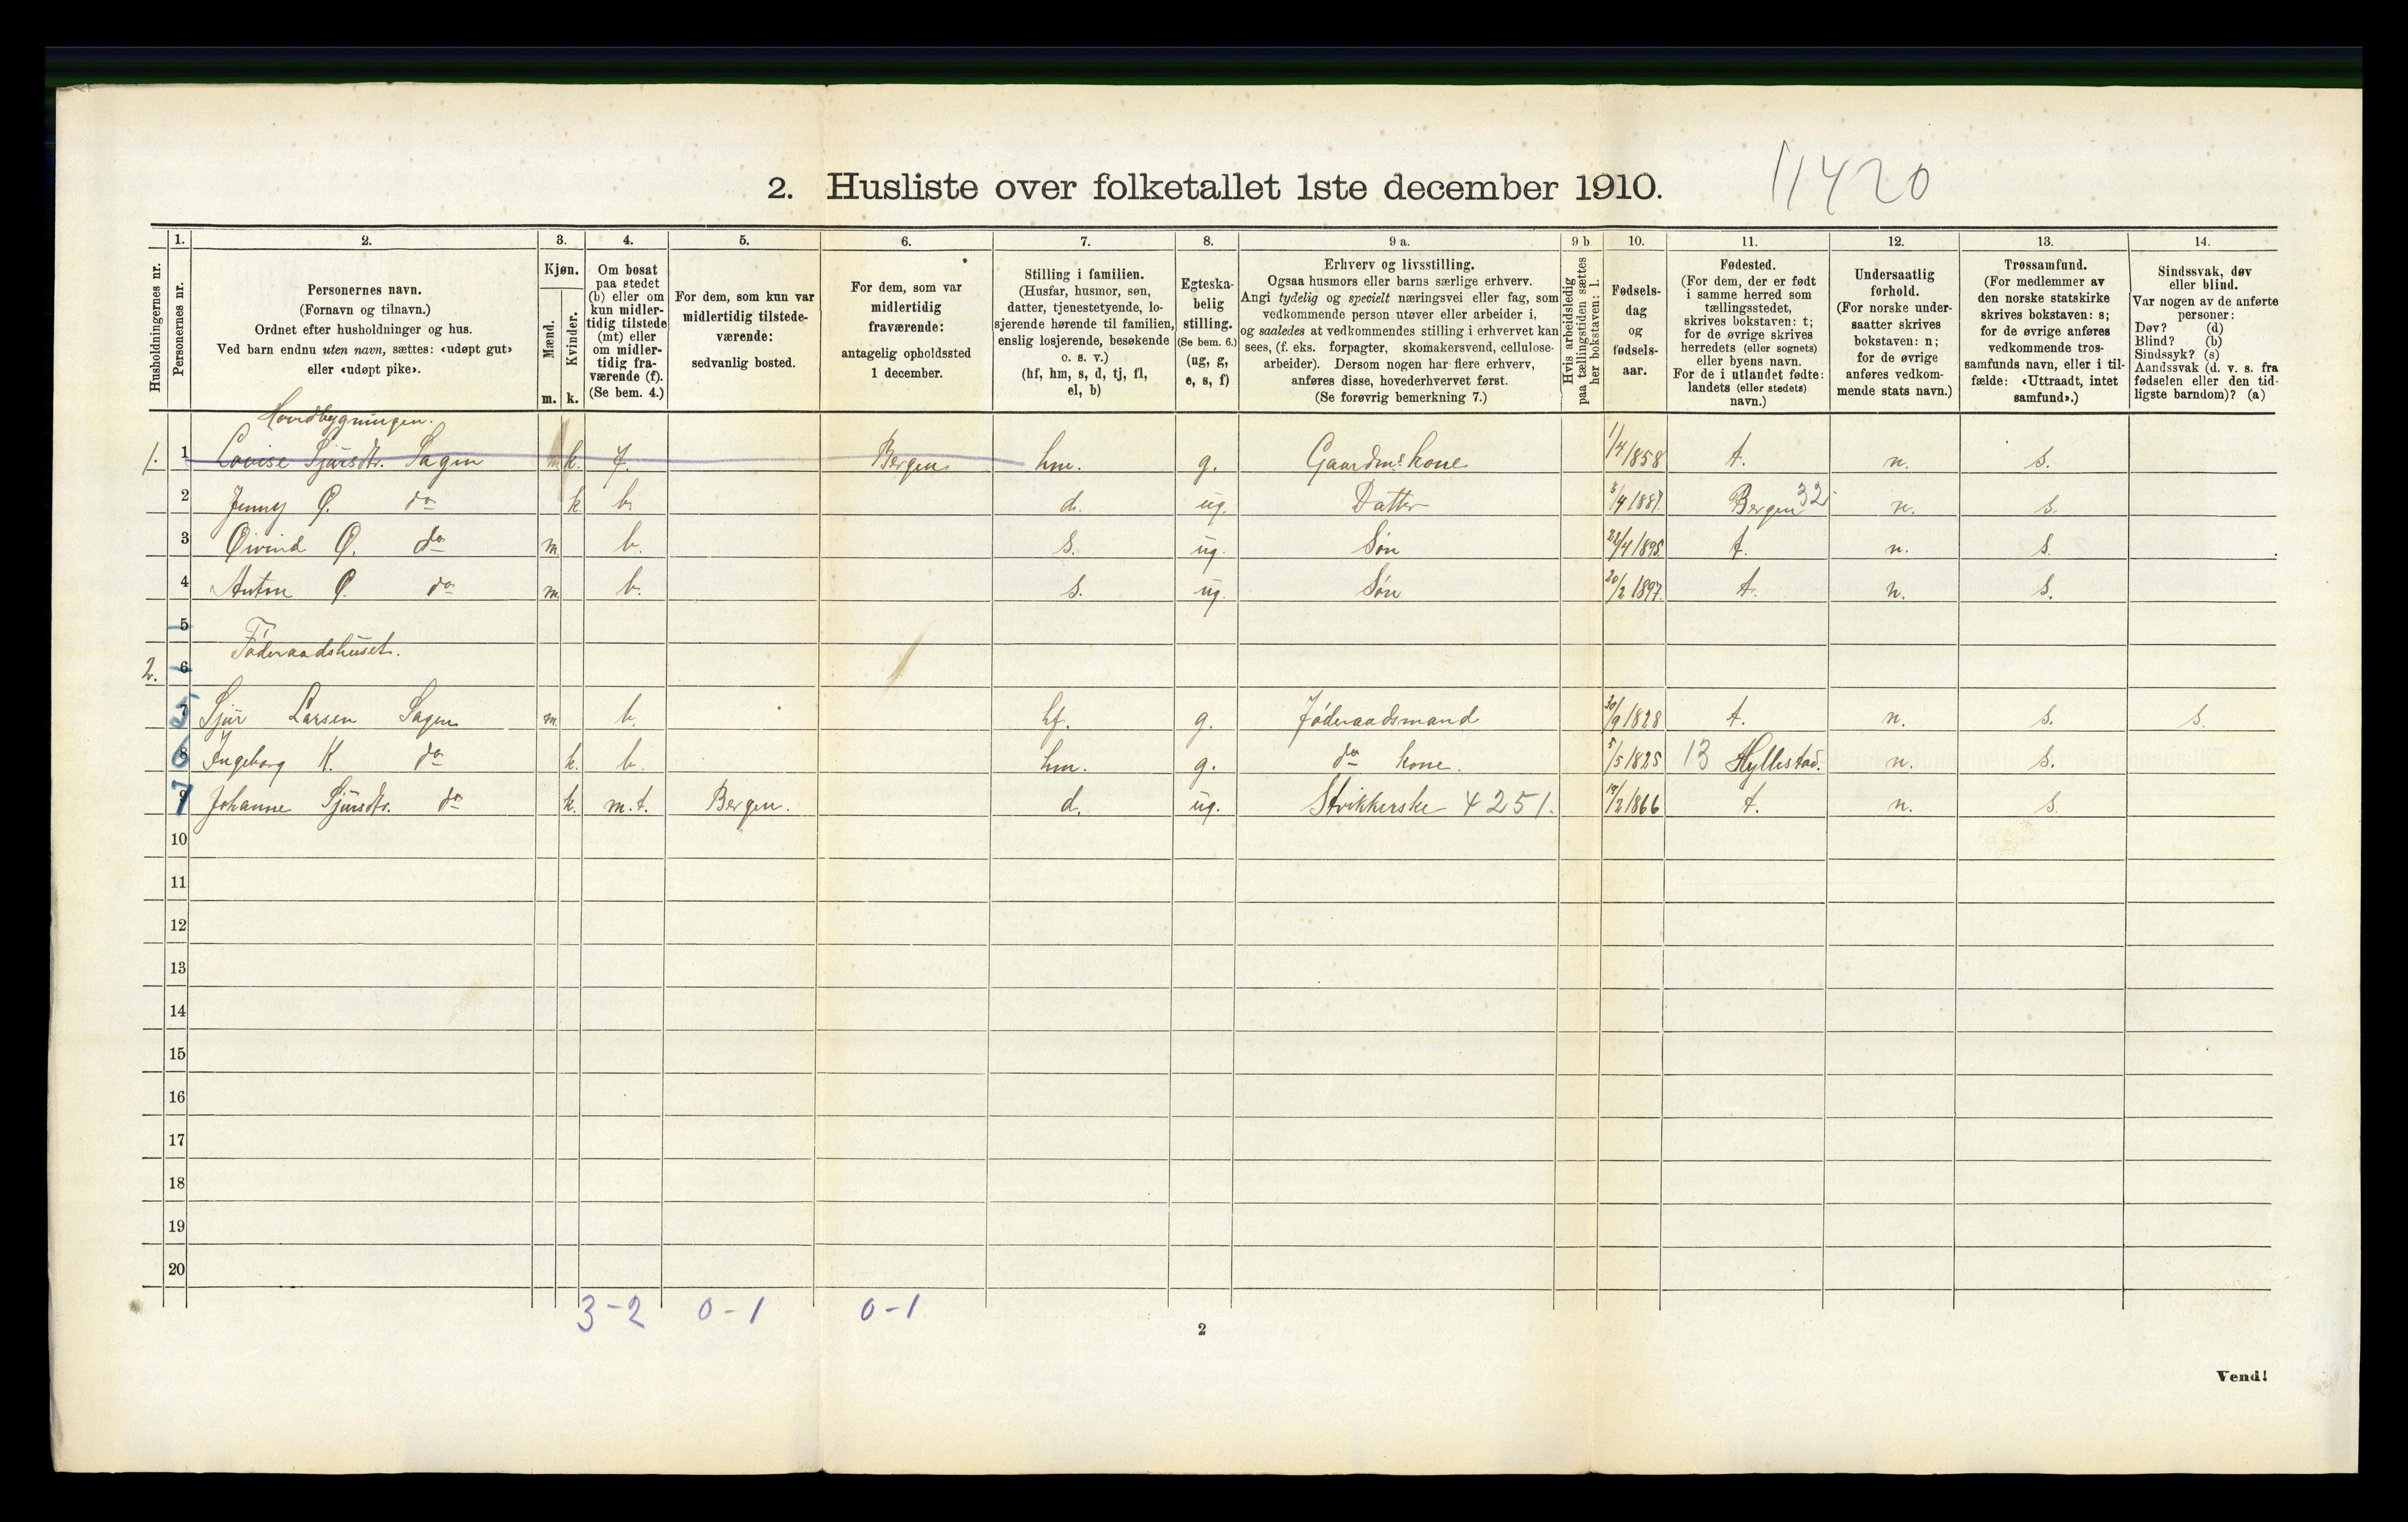 2. Husliste over folketallet 1ste december 1910.
11420
Husholdningernes nr.
1. Personernes nr.
2. Personernes navn. (Fornavn og tilnavn.) Ordnet efter husholdninger og hus. Ved barn endnu uten navn, sættes: «udøpt gut» eller «udøpt pike».
3. Kjøn. Mænd. m. Kvinder. k.
4. Om bosat paa stedet (b) eller om kun midlertidig tilstede (mt) eller om midlertidig fraværende (f). (Se bem. 4.)
5. For dem, som kun var midlertidig tilstedeværende: sedvanlig bosted.
6. For dem, som var midlertidig fraværende: antagelig opholdssted 1 december.
7. Stilling i familien. (Husfar, husmor, søn, datter, tjenestetyende, losjerende hørende til familien, enslig losjerende, besøkende o. s. v.) (hf, hm, s, d, tj, fl, el, b)
8. Egteskabelig stilling. (Se bem. 6.) (ug, g, e, s, f)
9 a. Erhverv og livsstilling. Ogsaa husmors eller barns særlige erhverv. Angi tydelig og specielt næringsvei eller fag, som vedkommende person utøver eller arbeider i, og saaledes at vedkommendes stilling i erhvervet kan sees, (f. eks. forpagter, skomakersvend, cellulosearbeider). Dersom nogen har flere erhverv, anføres disse, hovederhvervet først. (Se forøvrig bemerkning 7.)
9 b Hvis arbeidsledig paa tællingstiden sættes her bokstaven: l.
10. Fødselsdag og fødselsaar.
11. Fødested. (For dem, der er født i samme herred som tællingsstedet, skrives bokstaven: t; for de øvrige skrives herredets (eller sognets) eller byens navn. For de i utlandet fødte: landets (eller stedets) navn.)
12. Undersaatlig forhold. (For norske undersaatter skrives bokstaven: n; for de øvrige anføres vedkommende stats navn.)
13. Trossamfund. (For medlemmer av den norske statskirke skrives bokstaven: s; for de øvrige anføres vedkommende trossamfunds navn, eller i tilfælde: «Uttraadt, intet samfund».)
14. Sindssvak, døv eller blind. Var nogen av de anførte personer: Døv? (d) Blind? (b) Sindssyk? (s) Aandssvak (d. v. s. fra fødselen eller den tidligste barndom)? (a)
Hovedbygningen.
1. 1 Lovise Sjursdtr. Sagen k. f. Bergen hm. g. Gaardms kone 1/4 1858 t. n. s.
2 Jenny Ø. do k. b. d. ug. Datter 3/4 1887. Bergen 32 n. s.
3 Øivind Ø. do m. b. s. ug. Søn 22/4 1895 t. n. s.
4 Anton Ø. do m. b. s. ug. Søn 20/2 1897. t. n. s.
5
Føderaadshuset.
2. 6
5 7 Sjur Larsen Sagen m. b. hf. g. Føderaadsmand 30/9 1828 t. n. s. s.
6 8 Ingeborg K. do k. b. hm. g. do kone. 5/5 1825 13 Hyllestad. n. s.
7 9 Johanne Sjursdtr. do k. m.t. Bergen. d. ug. Strikkerske 4251. /2 1866 t. n. s.
10
11
12
13
14
15
16
17
18
19
20
3-2 0-1 0-1
2
Vend!